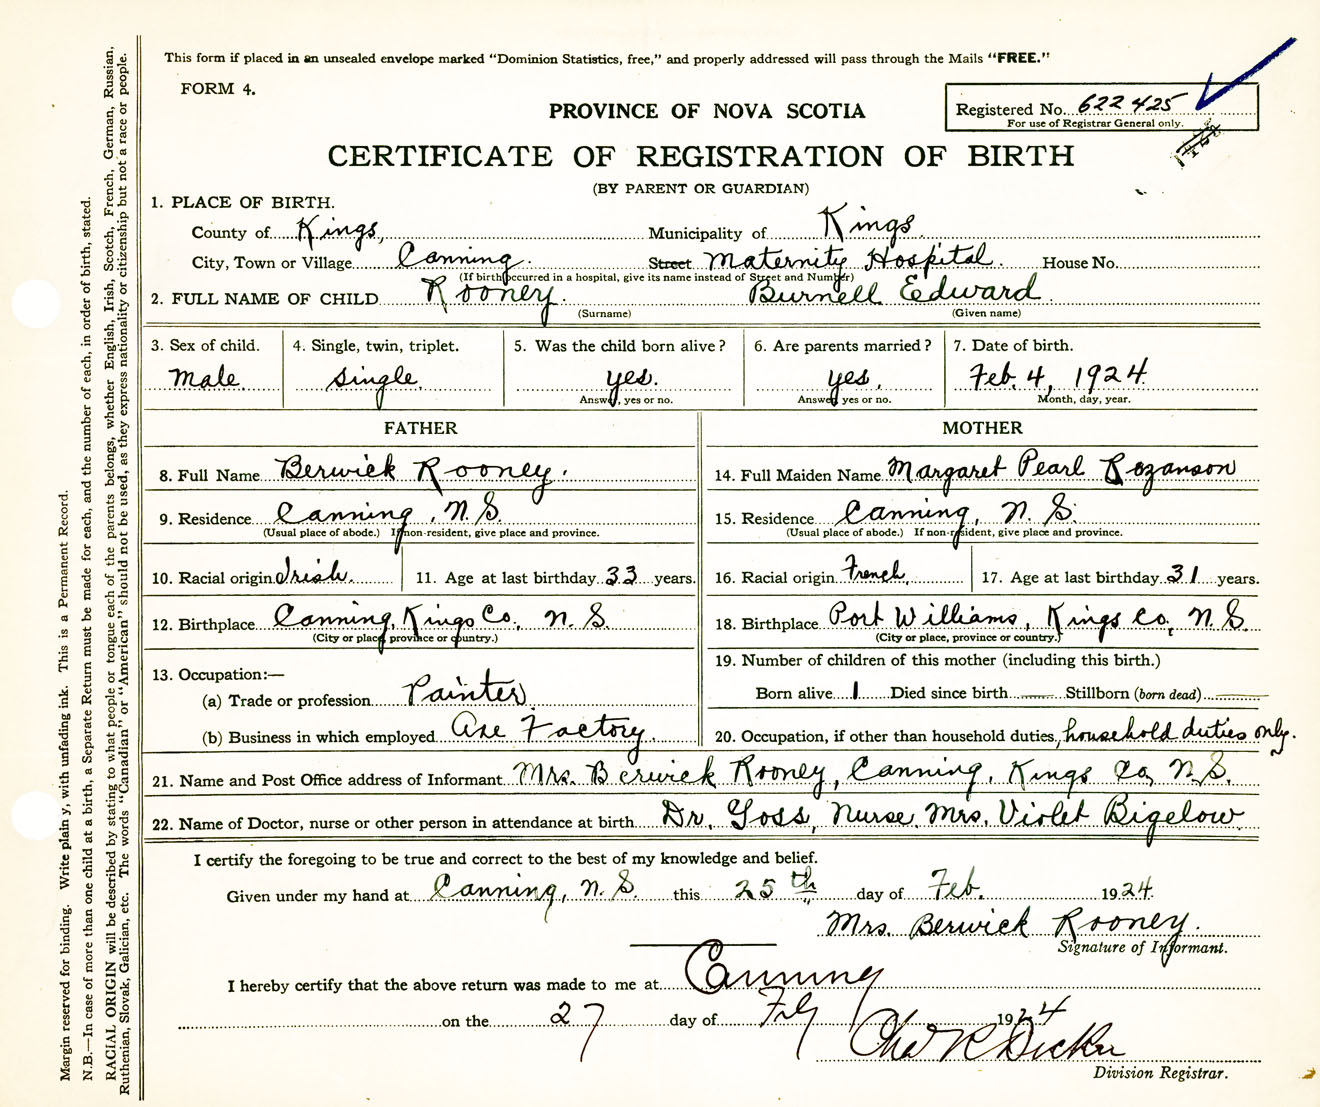 This form if placed in an unsealed envelope marked "Dominion Statistics, free," and properly addressed will pass through the Mails "FREE."
FORM 4.
Registered No. 622425
For use of Registrar General only.
PROVINCE OF NOVA SCOTIA
CERTIFICATE OF REGISTRATION OF BIRTH
(BY PARENT OR GUARDIAN)
1. PLACE OF BIRTH.
County of Kings, Municipality of Kings
City, Town or Village Canning. Street Maternity Hospital. House No.
(If birth occurred in a hospital, give its name instead of Street and Number)
2. FULL NAME OF CHILD Rooney. Burnell Edward
(Surname) (Given name)
3. Sex of child. 4. Single, twin, triplet. 5. Was the child born alive? 6. Are parents married? 7. Date of birth.
Male. Single. yes. yes. Feb. 4, 1924
Answer, yes or no. Answer, yes or no. Month, day, year.
FATHER MOTHER
8. Full Name Berwick Rooney. 14. Full Maiden Name Margaret Pearl Rozanson
9. Residence Canning, N.S. 15. Residence Canning, N. S.
(Usual place of abode.) If non-resident, give place and province. (Usual place of abode.) If non-resident, give place and province.
10. Racial origin Irish. 11. Age at last birthday 33 years. 16. Racial origin French. 17. Age at last birthday 31 years.
12. Birthplace Canning, Kings Co., N. S. 18. Birthplace Port Williams, Kings Co, N. S.
(City or place, province or country.) (City or place, province or country.)
13. Occupation:— 19. Number of children of this mother (including this birth.)
(a) Trade or profession Painter. Born alive 1 Died since birth — Stillborn (born dead) —
(b) Business in which employed Axe Factory. 20. Occupation, if other than household duties, household duties only.
21. Name and Post Office address of Informant Mrs. Berwick Rooney, Canning, Kings Co, N.S.
22. Name of Doctor, nurse or other person in attendance at birth Dr. Goss, Nurse. Mrs. Violet Bigelow.
I certify the foregoing to be true and correct to the best of my knowledge and belief.
Given under my hand at Canning, N. S. this 25th day of Feb. 1924.
Mrs. Berwick Rooney.
Signature of Informant.
I hereby certify that the above return was made to me at Canning
on the 27 day of Feby 1924
Division Registrar.
Margin reserved for binding. Write plainly, with unfading ink. This is a Permanent Record.
N.B.—In case of more than one child at a birth, a Separate Return must be made for each, and the number of each, in order of birth, stated.
RACIAL ORIGIN will be described by stating to what people or tongue each of the parents belongs, whether English, Irish, Scotch, French, German, Russian,
Ruthenian, Slovak, Galician, etc. The words "Canadian" or "American" should not be used, as they express nationality or citizenship but not a race or people.